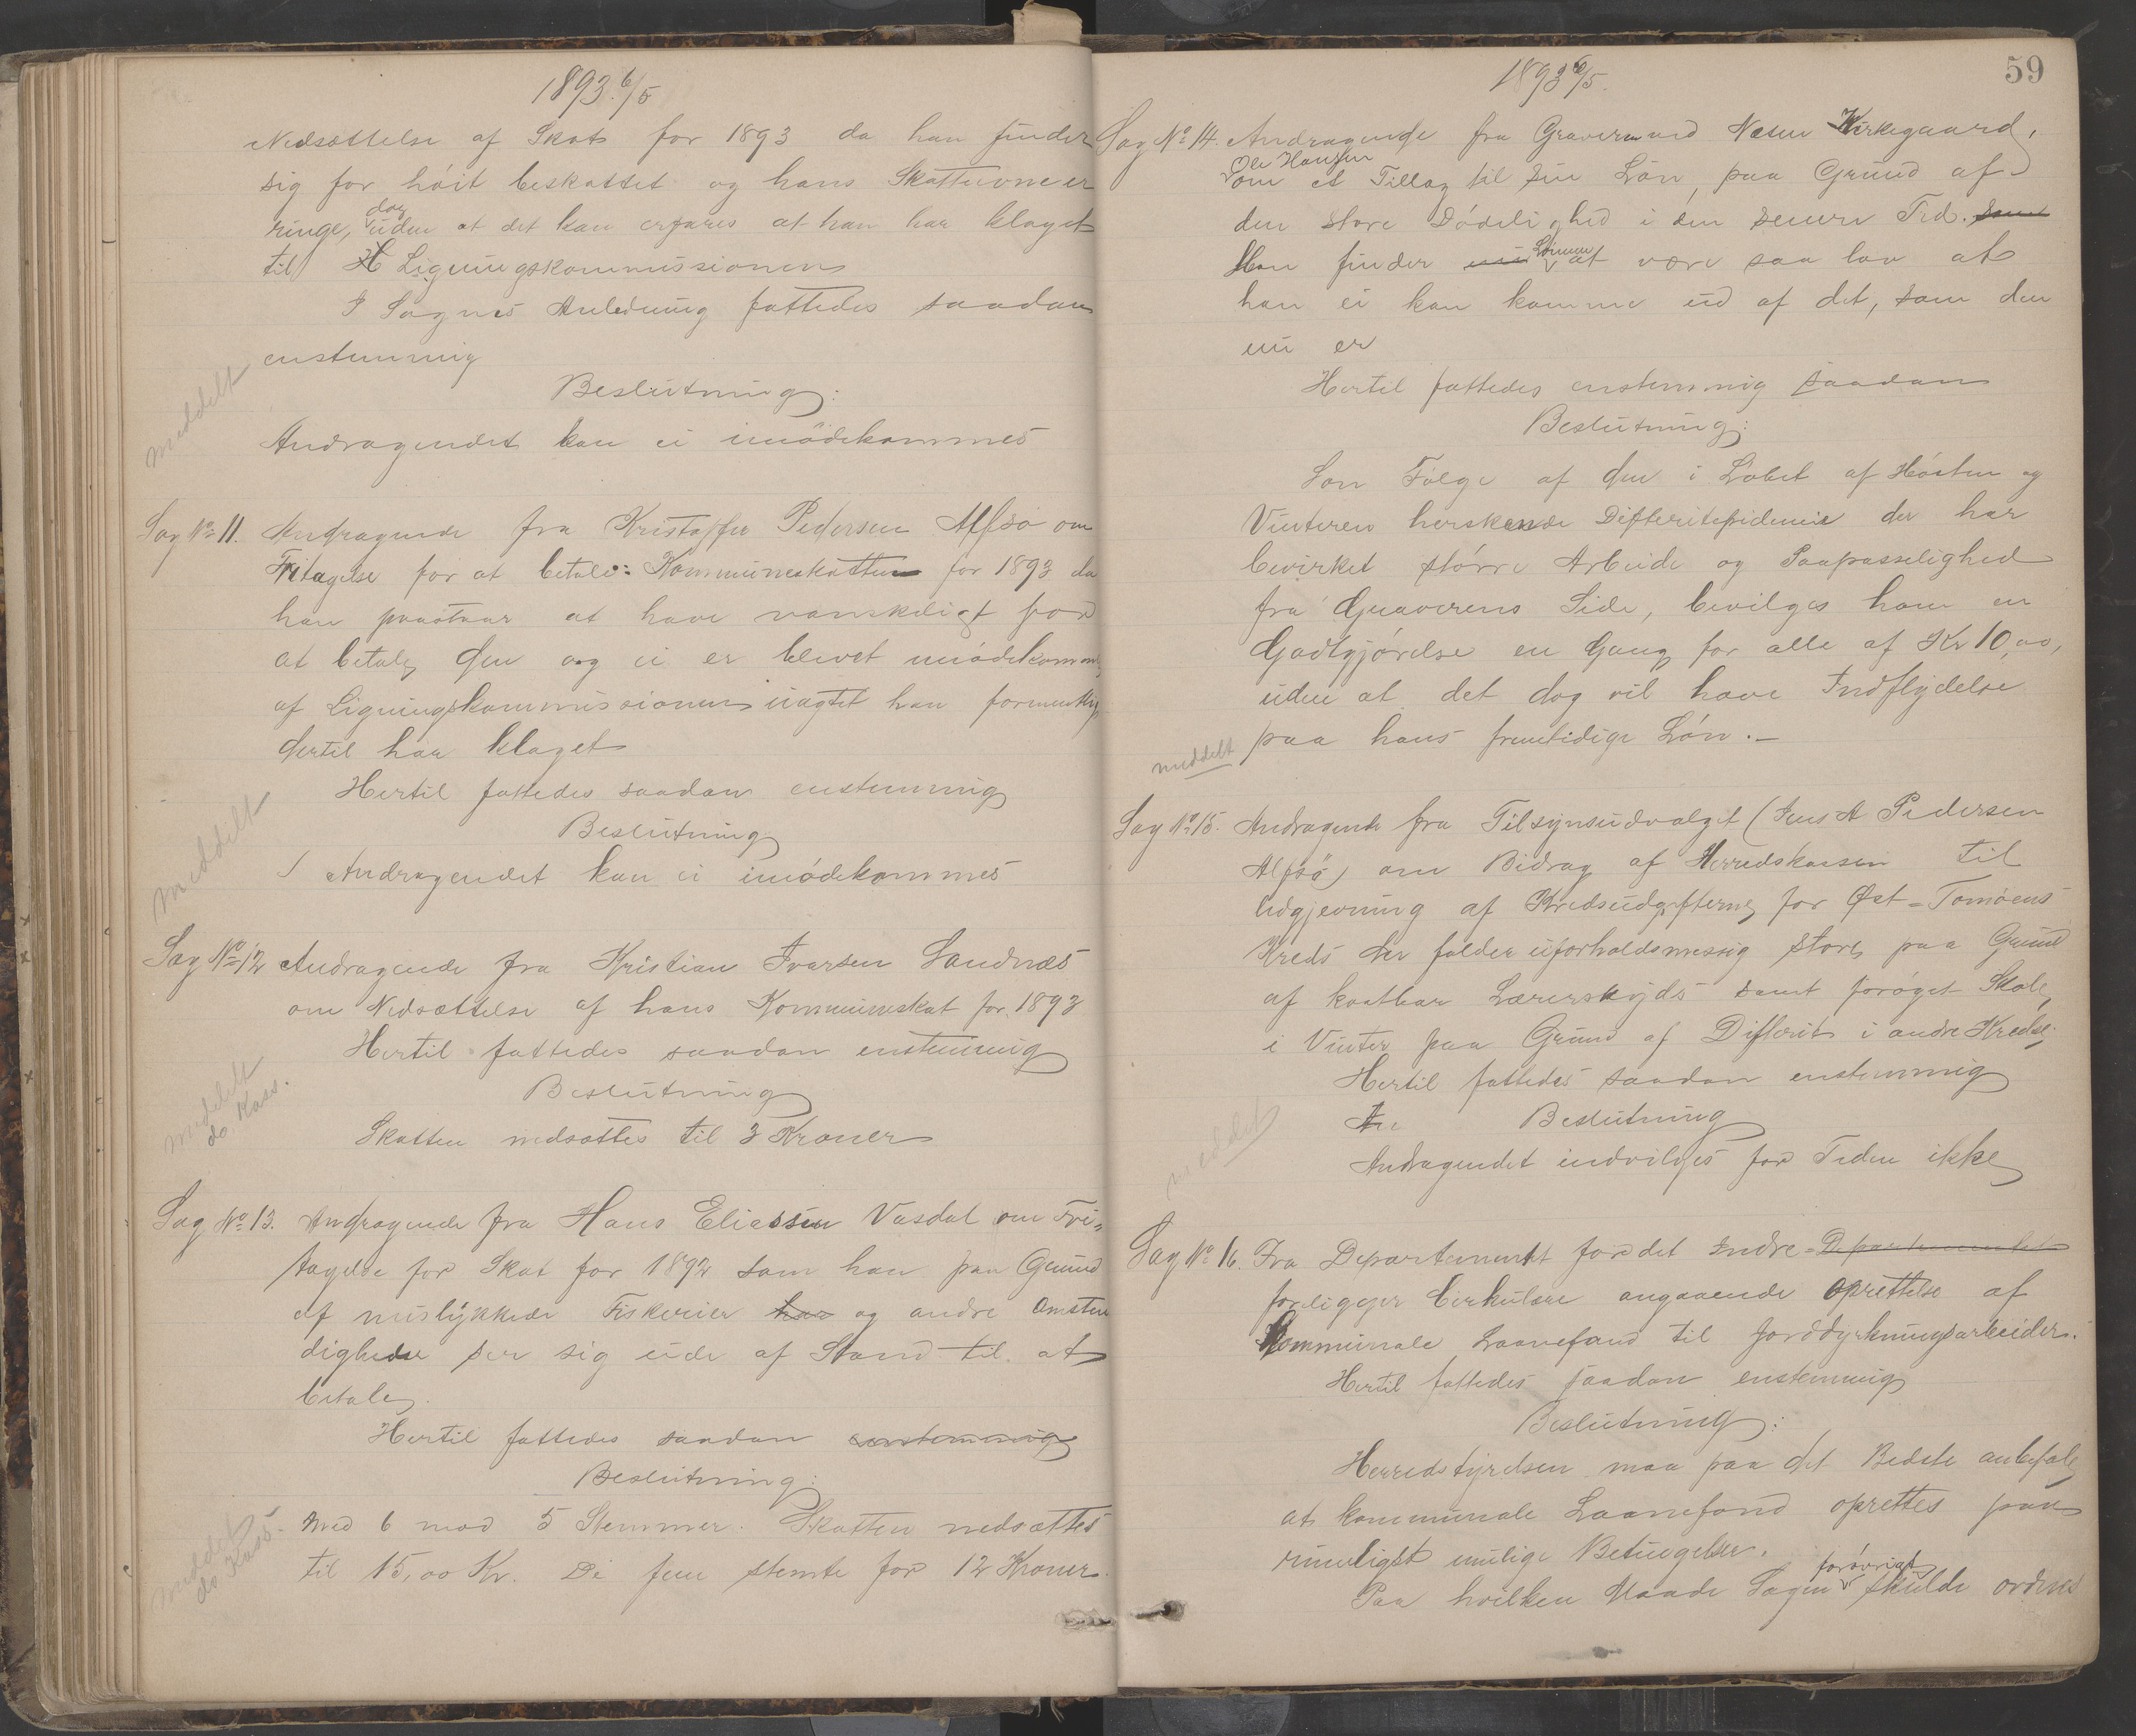 1893. 6/5
Nedsættelse af Skat for 1893 da han finder
sig for höit beskattet og hans Skatteevne er
ringe, dog uden at det kan erfares at han har klaget
til Ligningskommissionen
I Sagnes Anledning fattedes saadan
enstemmig
Beslutning:
meddelt
Andragendet kan ei imödekommes
Sag No 11. Andragende fra Kristoffer Pedersen Alfsö om
Fritagelse for at betale Kommuneskatten for 1893 da
han paastaar at have vanskeligt for
at betale den og ei er blevet imödekomm
af Ligningskommissionen uagtet han formentlig
dertil har klaget
Hertil fattedes saadan enstemmig
Beslutning
meddelt
Andragendet kan ei imödekommes
Sag No 12 Andragende fra Kristian Ivarsen Sandnæs
om Nedsættelse af hans Kommuneskat for 1893
Hertil fattedes saadan enstemmig
Beslutning
meddelt
do. Kass.
Skatten nedsættes til 3 Kroner
Sag No 13. Andragende fra Hans Eliassen Vasdal om Fri-
tagelse for Skat for 1892 som han paa Grund
af mislykkede Fiskerier har og andre Omsten
digheder ser sig ude af Stand til at
betale.
Hertil fattedes saadan enstemmig
Beslutning:
meddelt
do Kass.
Med 6 mod 5 Stemmer. Skatten nedsættes
til 15,00 Kr. De fem stemte for 12 Kroner.
59
1893 6/5.
Sag No 14. Andragende fra Graveren ved Nesne Kirkegaard,
Ole Hansen
om et Tillæg til sin Lön, paa Grund af
den store Dödelighed i den senere Tid. samt
Han finder Lönnen at være saa lav at
han ei kan komme ud af det, som den
nu er
Hertil fattedes enstemmig saadan
Beslutning:
Som Fölge af den i Löbet af Hösten og
Vinteren herskende Difteritepidemie der har
bevirket större Arbeide og Paapasselighed
fra Graverens Side, bevilges ham en
Godtgjörelse en Gang for alle af Kr 10,00,
uden at det dog vil have Indflydelse
paa hans fremtidige Lön.-
meddelt
Sag No 15. Andragende fra Tilsynsudvalget (Jens A Pedersen
Alfsö) om Bidrag af Herredskassen til
Udgjevning af Kredsudgifterne for Øst-Tomöens
Kreds der falder uforholdsmessig store paa Grund
af kostbar Lærerskyds samt foröget Skole
i Vinter paa Grund af Difterit i andre Kredse.
Hertil fattedes saadan enstemmig
An Beslutning
meddelt
Andragendet indvilges for Tiden ikke
Sag No 16. Fra Departementet for det Indre-Departementet
foreligger Cirkulære angaaende oprettelse af
Kommunale Laanefond til Jorddyrkningsarbeider.
Hertil fattedes saadan enstemmig
Beslutning:
Herredstyrelsen maa paa det Bedste anbefale
at kommunale Laanefond oprettes paa
rimeligst mulige Betingelser.
Paa hvilken Maade Sagen forövrigt skulde ordnes